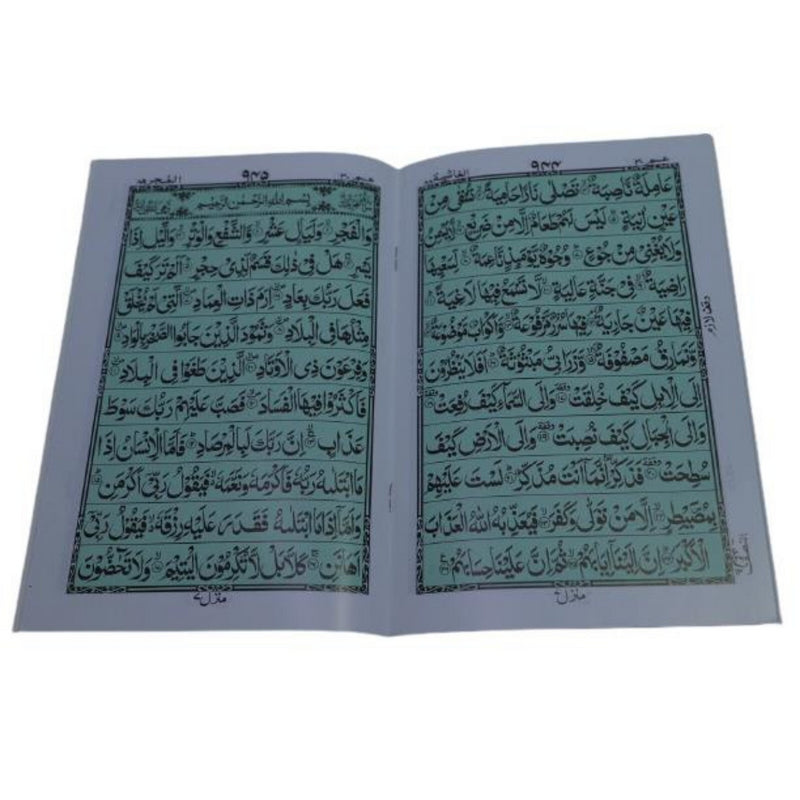 الغاشية ٨٨
٩٤٤
عم ٣٠
عَامِلَةٌ نَّاصِبَةٌ ۙ تَصْلٰى نَارًا حَامِيَةً ۙ تُسْقٰى مِنْ
عَيْنٍ اٰنِيَةٍ ؕ لَيْسَ لَهُمْ طَعَامٌ اِلَّا مِنْ ضَرِيْعٍ ۙ لَّا يُسْمِنُ
وَلَا يُغْنِيْ مِنْ جُوْعٍ ؕ وُجُوْهٌ يَّوْمَئِذٍ نَّاعِمَةٌ ۙ لِّسَعْيِهَا
رَاضِيَةٌ ۙ فِيْ جَنَّةٍ عَالِيَةٍ ۙ لَّا تَسْمَعُ فِيْهَا لَاغِيَةً ؕ
فِيْهَا عَيْنٌ جَارِيَةٌ ۘ فِيْهَا سُرُرٌ مَّرْفُوْعَةٌ ۙ وَّاَكْوَابٌ مَّوْضُوْعَةٌ ۙ
وَّنَمَارِقُ مَصْفُوْفَةٌ ۙ وَّزَرَابِيُّ مَبْثُوْثَةٌ ؕ اَفَلَا يَنْظُرُوْنَ
اِلَى الْاِبِلِ كَيْفَ خُلِقَتْ وَاِلَى السَّمَآءِ كَيْفَ رُفِعَتْ
وَاِلَى الْجِبَالِ كَيْفَ نُصِبَتْ وَاِلَى الْاَرْضِ كَيْفَ
سُطِحَتْ فَذَكِّرْ اِنَّمَآ اَنْتَ مُذَكِّرٌ ؕ لَسْتَ عَلَيْهِمْ
بِمُصَۜيْطِرٍ ۙ اِلَّا مَنْ تَوَلّٰى وَكَفَرَ ۙ فَيُعَذِّبُهُ اللّٰهُ الْعَذَابَ
الْاَكْبَرَ ؕ اِنَّ اِلَيْنَآ اِيَابَهُمْ ۙ ثُمَّ اِنَّ عَلَيْنَا حِسَابَهُمْ
وقف لازم
منزل ٧
الفجر ٨٩
٩٤٥
عم ٣٠
بِسْمِ اللّٰهِ الرَّحْمٰنِ الرَّحِيْمِ
وَالْفَجْرِ ۙ وَلَيَالٍ عَشْرٍ ۙ وَّالشَّفْعِ وَالْوَتْرِ ۙ وَالَّيْلِ اِذَا
يَسْرِ ۚ هَلْ فِيْ ذٰلِكَ قَسَمٌ لِّذِيْ حِجْرٍ ؕ اَلَمْ تَرَ كَيْفَ
فَعَلَ رَبُّكَ بِعَادٍ ۙ اِرَمَ ذَاتِ الْعِمَادِ ۙ الَّتِيْ لَمْ يُخْلَقْ
مِثْلُهَا فِي الْبِلَادِ ۙ وَثَمُوْدَ الَّذِيْنَ جَابُوا الصَّخْرَ بِالْوَادِ ۙ
وَفِرْعَوْنَ ذِي الْاَوْتَادِ ۙ الَّذِيْنَ طَغَوْا فِي الْبِلَادِ ۙ
فَاَكْثَرُوْا فِيْهَا الْفَسَادَ ۙ فَصَبَّ عَلَيْهِمْ رَبُّكَ سَوْطَ
عَذَابٍ ۚ اِنَّ رَبَّكَ لَبِالْمِرْصَادِ ؕ فَاَمَّا الْاِنْسَانُ اِذَا
مَا ابْتَلٰىهُ رَبُّهٗ فَاَكْرَمَهٗ وَنَعَّمَهٗ ۙ فَيَقُوْلُ رَبِّيْٓ اَكْرَمَنِ ؕ
وَاَمَّآ اِذَا مَا ابْتَلٰىهُ فَقَدَرَ عَلَيْهِ رِزْقَهٗ ۙ فَيَقُوْلُ رَبِّيْٓ
اَهَانَنِ ۚ كَلَّا بَلْ لَّا تُكْرِمُوْنَ الْيَتِيْمَ ۙ وَلَا تَحٰٓضُّوْنَ
منزل ٧